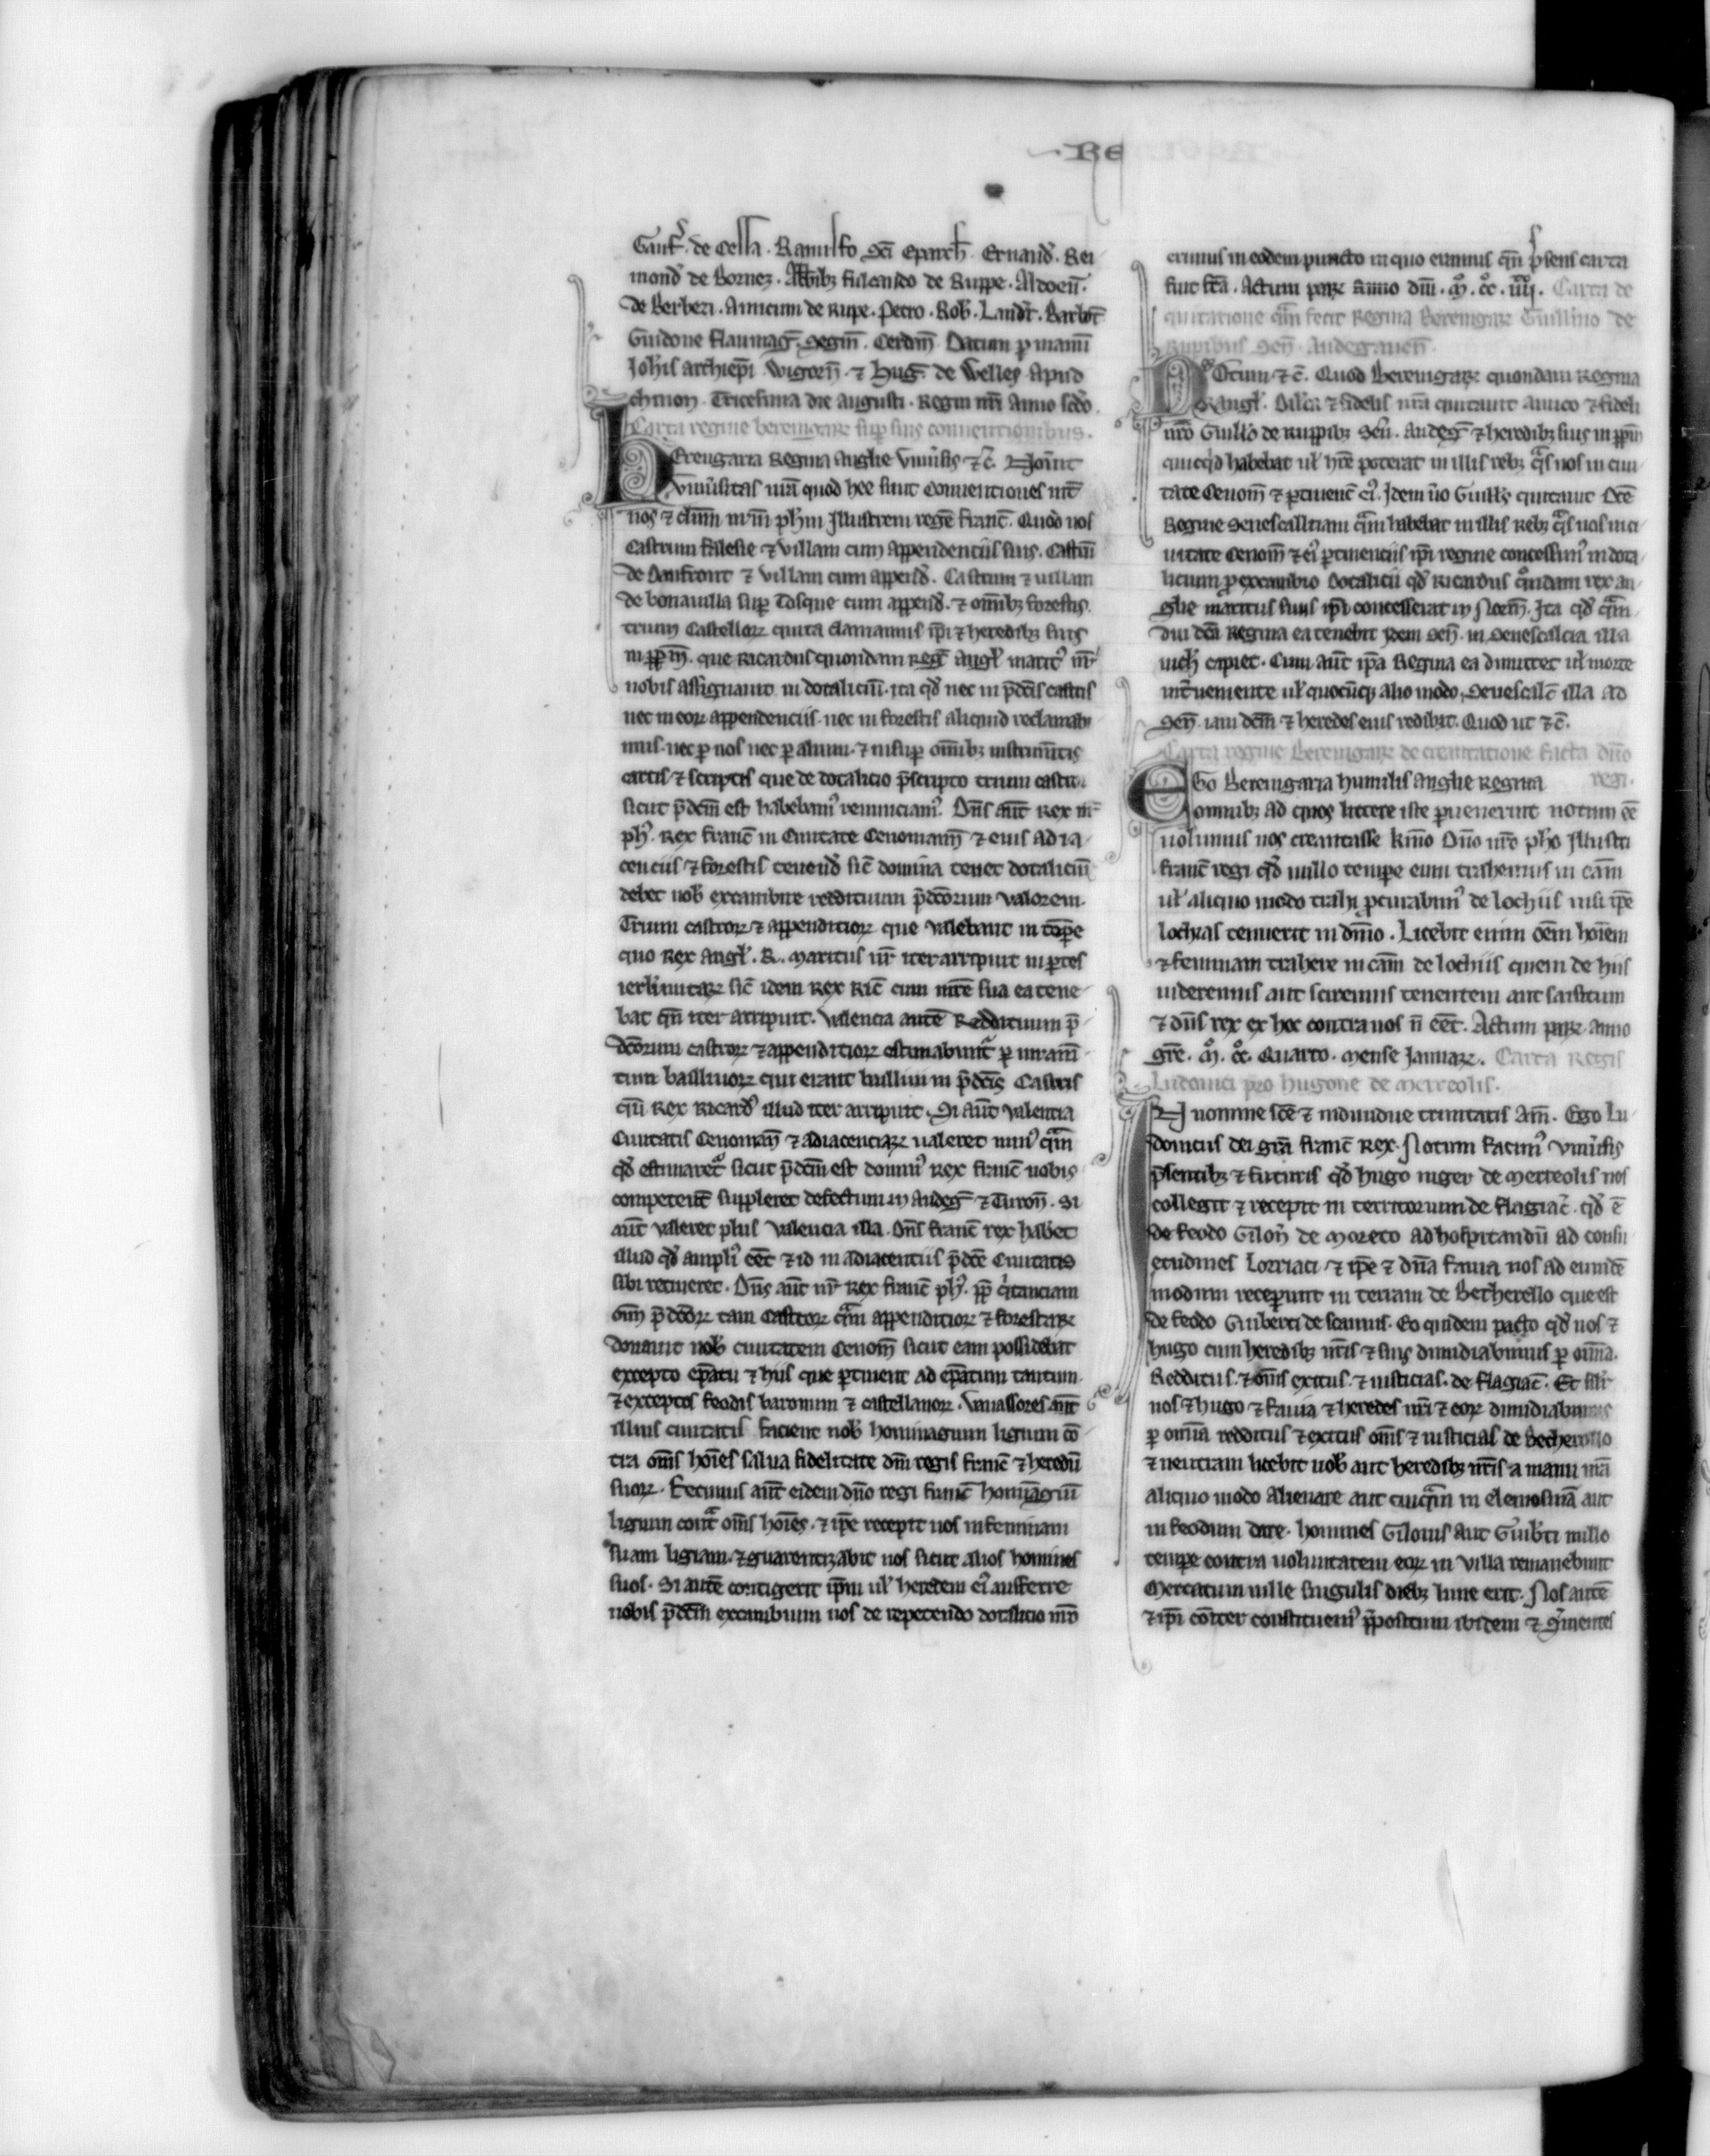 RE
Gauf̄. de Cella. Ranulfo Sc̄i Eparch. Ernaud̄. Rei
mond̄ de Bornez. Abbib; fulcaudo de Ruppe. Aldoen̄.
de Berbezi. Amicum de Rupe. Petro. Rob̄. Landr̄. Barbot̄
Guidone flaumaḡ. Segin̄. Cerdm̄ Datum ꝑ manū
Joh̄is archiep̄i Wigorn̄. ⁊ Huḡ. de Welles apud
chinon. Tricesima die augusti. Regni nr̄i Anno sc̄do.
Carta regine berengarie suꝑ suis conuentionibus.
BErengaria Regina anglie Vniu̓sis ⁊c̄. Nou̓it
Vniu̓sitas ur̄a quod hee sunt Conuentiones int̄
nos ⁊ dn̄m nr̄m ph̄m Jllustrem regē franc̄. Quod nos
Castrum falesie ⁊ villam cum appendentiis suis. Castrū
de Danfront ⁊ villam cum append̄. Castrum ⁊ uillam
de bonauilla suꝑ Tosque cum append̄. ⁊ om̄ib; forestis.
trium Castelloꝝ quita clamamus ip̄i ⁊ heredib; suis
in ꝑpm̄. que Ricardus quondam Reḡ angl̄ marit᾿ nr̄
nobis assignauit in dotaliciū. ita qd̄ nec in p̄dc̄is castris
nec in eoꝝ appendenciis. nec in forestis aliquid reclamabi
mus. nec ꝑ nos nec ꝑ alium. ⁊ insuꝑ om̄ib; instrum̄tis
cartis ⁊ scriptis que de dotalicio p̄scripto trium castr̄.
sicut p̄dc̄m est habebam᾿ renunciam᾿. Dn̄s aut̄ Rex nr̄
ph᾿. Rex franc̄ in Ciuitate Cenomann̄ ⁊ eius adia
cenciis ⁊ forestis tenend̄ sic̄ domina tenet dotaliciū
debet nob̄ excambire reddituum p̄dc̄orum valorem.
Trium castroꝝ ⁊ appenditioꝝ que valebant in tꝑe
quo Rex Angl̄. R. maritus nr̄ iter arripuit in ꝑtes
ierl̄imitaꝝ sic̄ idem Rex Ric̄ cum mr̄e sua ea tene
bat qn̄ iter arripuit. Valencia autē Reddituum p̄
dc̄orum castroꝝ ⁊ appenditioꝝ estimabunt᾿ ꝑ iuram̄
tum bailliuoꝝ qui erant baillini in p̄dc̄is Castris
qn̄ Rex Ricard᾿ illud iter arripuit. Si aut̄ valentia
Ciuitatis Cenoman̄ ⁊ adiacentiaꝝ ualeret min᾿ qm̄
qd̄ estimaret᾿ sicut p̄dc̄m est domin᾿ Rex franc̄ nobis
competent̄ suppleret defectum in Andeḡ ⁊ Turon̄. Si
aut̄ valeret plus Valencia illa. Dn̄s franc̄ rex habet
illud qd̄ ampli᾿ eēt ⁊ id in adiacentiis p̄dc̄e Ciuitatis
sibi retineret. Dn̄s aut̄ nr̄ Rex franc̄ ph᾿. ꝓp̄ q̓tanciam
om̄ p̄dc̄oꝝ tam Castroꝝ qm̄ appenditioꝝ ⁊ forestaꝝ
donauit nob̄ ciuitatem Cenom̄ sicut eam possidebat
excepto ep̄atu ⁊ hiis que ꝑtinent ad ep̄atum tantum.
⁊ exceptis feodis baronum ⁊ castellanoꝝ. Vauassores aut̄
illius ciuitatis facient nob̄ hominagium ligium cō
tra om̄s hoīes salua fidelitate dn̄i regis franc̄ ⁊ heredū
suoꝝ. Fecimus aut̄ eidem dn̄o regi franc̄ hominagiū
ligium cont̄ om̄s hoīes. ⁊ ip̄e recepit nos in feminam
suam ligiam. ⁊ guarentizabit nos sicut alios homines
suos. Si autē contigerit ip̄m ul̄ heredem ei᾿ aufferre
nobis p̄dc̄m excambium nos de repetendo dotalicio nr̄o
erimus in eodem puncto in quo eramus qn̄ p̄sens carta
fuit fc̄a. Actum paꝝ anno dn̄i. m̊. cc̊. iiij̊. Carta de
quitatione qm̄ fecit Regina Berengaꝝ Guillmo de
Rupibus Sen̄. Andegauen̄.
NOtum ⁊c̄. Quod Berengaꝝ quondam Regina
Angl̄. Dilc̄a ⁊ fidelis nr̄a quitauit amico ⁊ fideli
nr̄o Guill̄o de Ruppib; Sen̄. Andeḡ ⁊ heredib; suis in ꝑpm̄
quicqd̄ habebat ul̄ hr̄e poterat in illis reb; qs̄ nos in ciui
tate Cenom̄ ⁊ ꝑtinenc̄ ei᾿. Jdem u̓o Guill̄s quitauit Dc̄e
Regine Senescalliam qm̄ habebat in illis Reb; qs̄ nos in ci
uitate Cenom̄ ⁊ ei᾿ ꝑtinenciis ip̄i regine concessim᾿ in dota
licium ꝓ excambio dotalicii qd̄ Ricardus quōdam rex an
glie maritus suus ip̄i concesserat in Norm̄. Ita qd̄ qm̄
diu dc̄a Regina ea tenebit Jdem Sen̄. in Senescalcia illa
nich̄ capiet. Cum aut̄ ip̄a Regina ea dimittet ul̄ morte
int̓ueniente ul̄ quocūq; alio modo, Senescalc̄ illa ad
Sen̄. iam dc̄m ⁊ heredes eius redibit. Quod ut ⁊c̄.
Carta regine Berengaꝝ de creantatione facta dn̄o
regi.
EGo Berengaria humilis anglie Regina
omnib; ad quos littere iste ꝑuenerint notum eē
uolumus nos creantasse kmo Dn̄o nr̄o pho Jllustri
franc̄ regi qd̄ nullo tempe eum trahemus in cām
ul̄ aliquo modo trahi ꝓcurabim᾿ de lochiis nisi ip̄e
lochias tenuerit in dn̄io. Licebit enim oēm hoīem
⁊ feminam trahere in cām de lochiis quem de hiis
uideremus aut sciremus tenentem aut saisitum
⁊ dn̄s rex ex hoc contra nos n̄ eēt. Actum paꝝ anno
gr̄e. m̊. cc̊. Quarto. mense Januaꝝ. Carta Regis
Ludouici pro Hugone de Mereolis.
IN nomine sc̄e ⁊ indiuidue trinitatis Am̄. Ego Lu
douicus dei gr̄a franc̄ Rex. Notum facim᾿ Vniu̓sis
p̄sentib; ⁊ futuris qd̄ hugo niger de Merreolis nos
collegit ⁊ recepit in territorium de flagiac̄. qd̄ ē
de feodo Gilon̄ de Moreto ad hospitandū ad consu
etudines Lorriaci ⁊ ip̄e ⁊ dn̄a fauia nos ad eundē
modum receperunt in terram de Becherello que est
de feodo Guiberti de scannis. Eo quidem pacto qd̄ nos ⁊
hugo cum heredib; nr̄is ⁊ suis dimidiabimus ꝑ om̄ia.
Redditus. ⁊ om̄s exitus. ⁊ iusticias. de flagiac̄. Et silr̄
nos ⁊ hugo ⁊ fauia ⁊ heredes nr̄i ⁊ eoꝝ dimidiabimus
ꝑ omn̄ia redditus ⁊ exitus om̄s ⁊ iusticias de Becherollo
⁊ neutiam licebit nob̄ aut heredib; nr̄is a manu nr̄a
aliquo modo alienare aut cuiqm̄ in elemosinā aut
in feodum dare. homines Gilonis aut Guib̓ti nullo
tempe contra uoluntatem eoꝝ in villa remanebunt
Mercatum uille singulis dieb; lune erit. Nos autē
⁊ ip̄i cōiter constituem᾿ p̄positum ibidem ⁊ s̓uientes